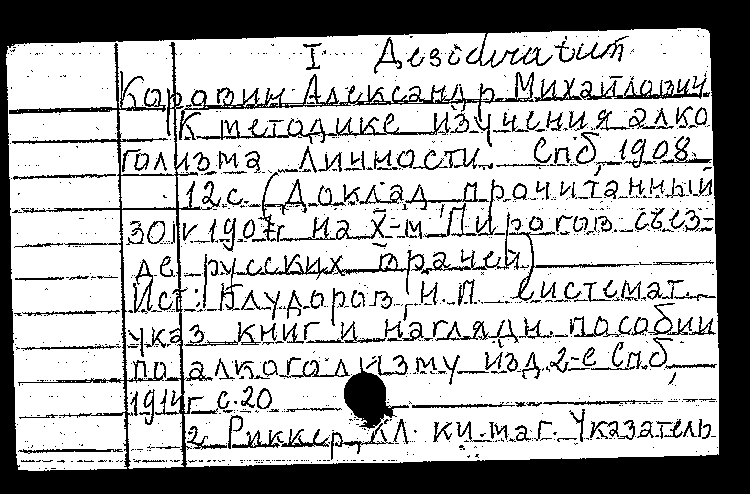 I Дезidیratum
Коровин Александр Михайлович
К методике изучения алко
голизма личности. Спб, 1908.
12 с. (Доклад прочитанный
30 IV 1907г на X-м Пирогов съез-
де русских врачей)
Ист: Блудоров, Н.П системат.
указ книг и наглядн. пособий
по алкоголизму изд. 2-е Спб,
1914г с. 20
2 Риккер, КЛ. кн. маг. Указатель